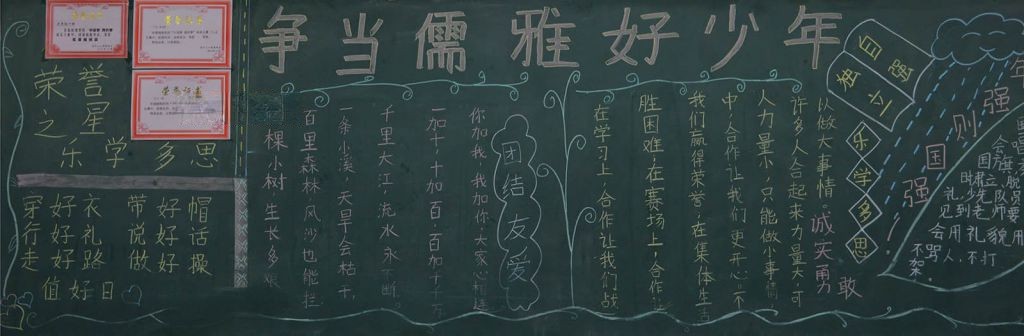 争当儒雅好少年
荣誉
之星
乐学多思
荣誉证书
穿好衣 带好帽
行好礼 说好话
走好路 做好操
值好日
团结友爱
你加我,我加你,大家心相连
一加十,十加百,百加千万
千里大江,流水永不断。
条小溪,天旱会枯干,
百里森林,风沙也能拦
棵小树,生长多
以做大事情。
许多人合起来力量大,可
人力量小,只能做小事情
中,合作让我们更开心。不
我们赢得荣誉,在集体生活
胜困难,在赛场上,合作让
在学习上,合作让我们战
诚实勇敢
自强
独立
乐学多思
国强
则强
年
时肃立
礼,少先队
见到老师要
会用礼貌用
不骂人,不打
架。